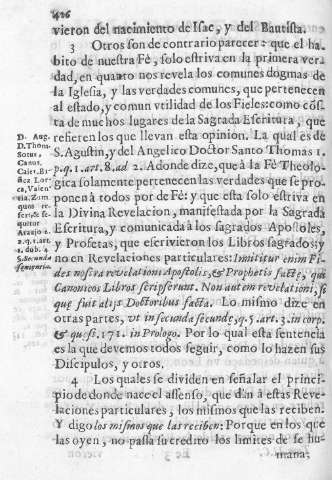 426
vieron del nacimiento de Isac, y del Bautista.
3 Otros son de contrario parecer: que el ha-
bito de nuestra Fè, solo estriva en la primera ver-
dad, en quanto nos revela los comunes dogmas de
la Iglesia, y las verdades comunes, que pertenecen
al estado, y comun vtilidad de los Fieles: como cõs-
ta de muchos lugares de la Sagrada Escritura, que
refieren los que llevan esta opinion. La qual es de
S. Agustin, y del Angelico Doctor Santo Thomas 1.
p. q. 1. art. 8. ad 2. Adonde dize, que à la Fè Theolo-
gica solamente pertenecen las verdades que se pro-
ponen à todos por de Fè: y que esta solo estriva en
la Divina Revelacion, manifestada por la Sagrada
Escritura, y comunicada à los sagrados Apostoles,
y Profetas, que escrivieron los Libros sagrados; y
no en Revelaciones particulares: Innititur enim Fi-
des nostra revelationi Apostolis, & Prophetis factæ, qui
Canonicos Libros scripserunt. Non autem revelationi, si
que fuit alijs Doctoribus facta. Lo mismo dize en
otras partes, vt in secunda secundæ, q. 5. art. 3. in corp.
& quæst. 171. in Prologo. Por lo qual esta sentencia
es la que devemos todos seguir, como lo hazen sus
Discipulos, y otros.
4 Los quales se dividen en señalar el princi-
pio de donde nace el assenso, que dàn à estas Reve-
laciones particulares, los mismos que las reciben.
Y digo los mismos que las reciben: Porque en los que
las oyen, no passa su credito los limites de fe hu-
mana;
D. Aug.
D. Thom.
Sotus,
Canus,
Caiet. Bañez
Lorca,
Valen-
cia, Zum.
quos re-
fert, & se-
quitur
Araujo 2.
2. q. 1. art.
1. dub. 4.
§. Secunda
sententia.